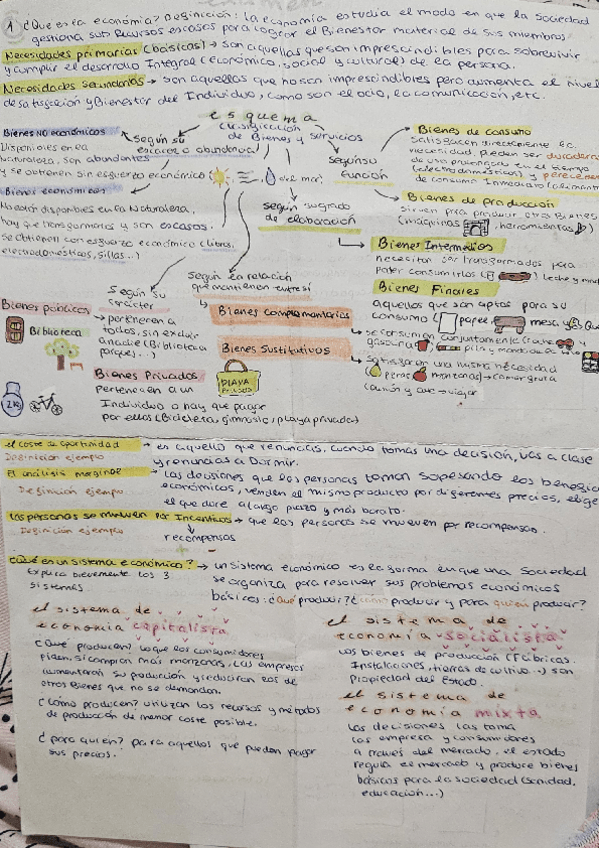 1 ¿Que es la economía? Definición: la economía estudia el modo en que la sociedad
gestiona sus Recursos escasos para lograr el Bienestar material de sus miembros.
Necesidades primarias (básicas) → son aquellas que son imprescindibles para sobrevivir
y cumplir el desarrollo Integral (económico, social y cultural) de la persona.
Necesidades secundarias → son aquellas que no son imprescindibles pero aumenta el nivel
de satisfacción y Bienestar del Individuo, como son el ocio, la comunicación, etc.
esquema
clasificación
de Bienes y servicios
Bienes no económicos
Disponibles en la
Naturaleza, son abundantes
y se obtienen sin esfuerzo económico
según su
escasez o abundancia
del mar
Bienes económicos
No están disponibles en la Naturaleza,
hay que transformarlos y son escasos.
se obtienen con esfuerzo económico (libros,
electrodomésticos, sillas..)
según su
función
Bienes de consumo
Satisfacen directamente la
necesidad pueden ser duraderos
de uso prolongado en el tiempo
(electrodomésticos) y perecederos
de consumo Inmediato (alimentos
Bienes de producción
sirven para producir otro Bienes
(máquinas, herramientas)
según su grado
de elaboración
Bienes Intermedios
necesitan ser transformados para
poder consumirlos
leche y
Bienes Finales
aquellos que son aptos para su
consumo (papel, mesa y
Según su
carácter
Según la relación
que mantienen entre sí
Bienes públicos
Biblioteca
→ pertenecen a
todos, sin excluir
a nadie (Biblioteca
parques...)
Bienes Privados
pertenecen a un
Individuo o hay que pagar
por ellos (Bicicleta, gimnasio, playa privada)
2KG
PLAYA
Privada
Bienes complementarios
→ se consumen conjuntamente (coche y
gasolina, pila y mando de
Bienes Sustitutivos
→ Satisfacen una misma necesidad
(peras manzanas) → comer fruta
(avión y ave → viajar
el coste de oportunidad → es aquello que renuncias, cuando tomas una decisión, vas a clase
y renuncias a Dormir.
Definición ejemplo
El análisis marginal → las decisiones que las personas toman sopesando los beneficios
económicos, venden el mismo producto por diferentes precios, elige
Definición ejemplo
el que dure a largo plazo y más barato.
las personas se mueven por Incentivos → que las personas se mueven por recompensas.
Definición ejemplo
recompensas
¿Qué es un sistema económico? → un sistema económico es la forma en que una Sociedad
Explica brevemente los 3
sistemas.
se organiza para resolver sus problemas económicos
básicos: ¿Qué producir? ¿cómo producir y para quién producir?
el sistema de
economía capitalista
¿Qué producen? Lo que los consumidores
piden, si compran más manzanas, las empresas
aumentarán su producción y reducirán los de
otros Bienes que no se demandan.
¿Como producen? utilizan los recursos y métodos
de producción de menor coste posible.
¿para quien? para aquellos que puedan pagar
sus precios.
el sistema de
economía socialista
Los bienes de producción (Fábricas,
Instalaciones, tierras de cultivo...) son
propiedad del Estado.
el sistema de
economía mixta
las decisiones las toma
las empresa y consumidores
a través del mercado, el estado
regula el mercado y produce bienes
básicos para la sociedad (sanidad,
educación...)